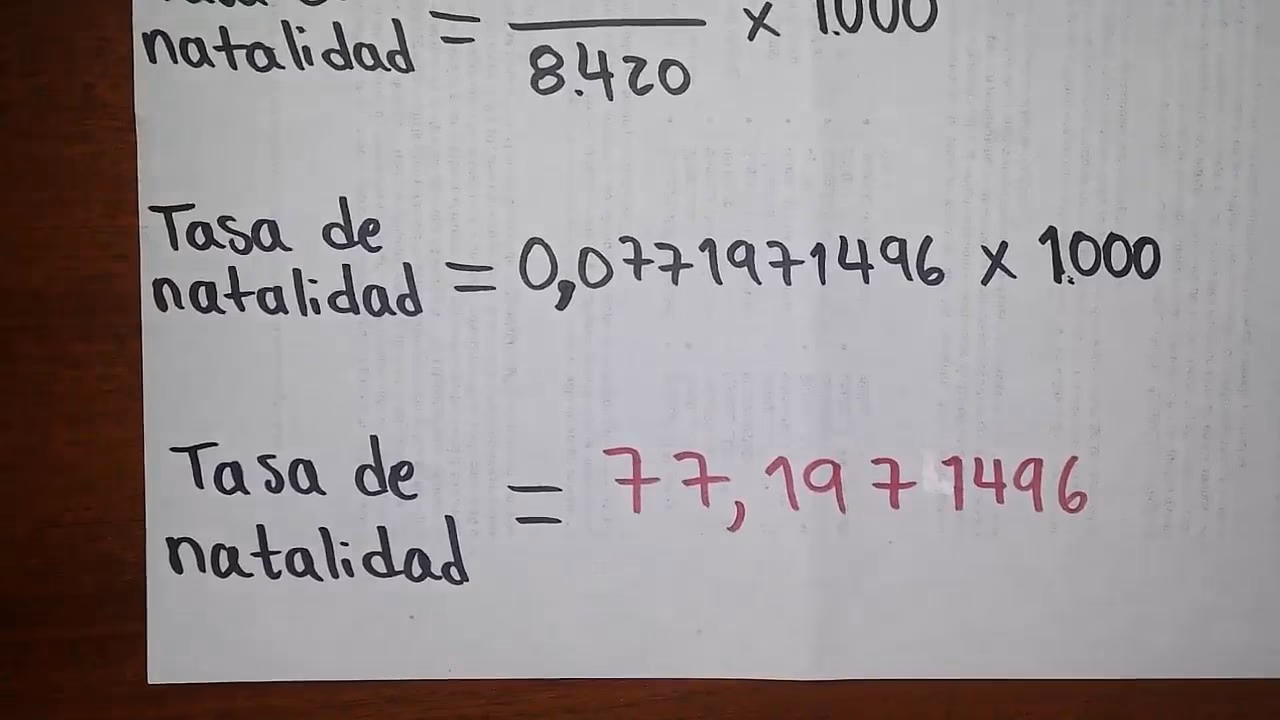 natalidad = 8.420 x 1.000
Tasa de
natalidad = 0,0771971496 x 1.000
Tasa de
natalidad = 77,1971496